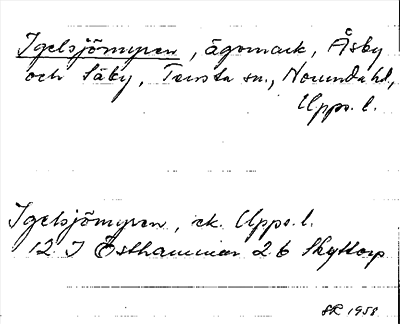 Igelsjömyren, ägomark, Åsby
och Säby, Tensta sn., Norunda hd,
Upps. l.
Igelsjömyren, ek. Upps. l.
12 I Östhammar 2 b Skyttorp
SR 1958